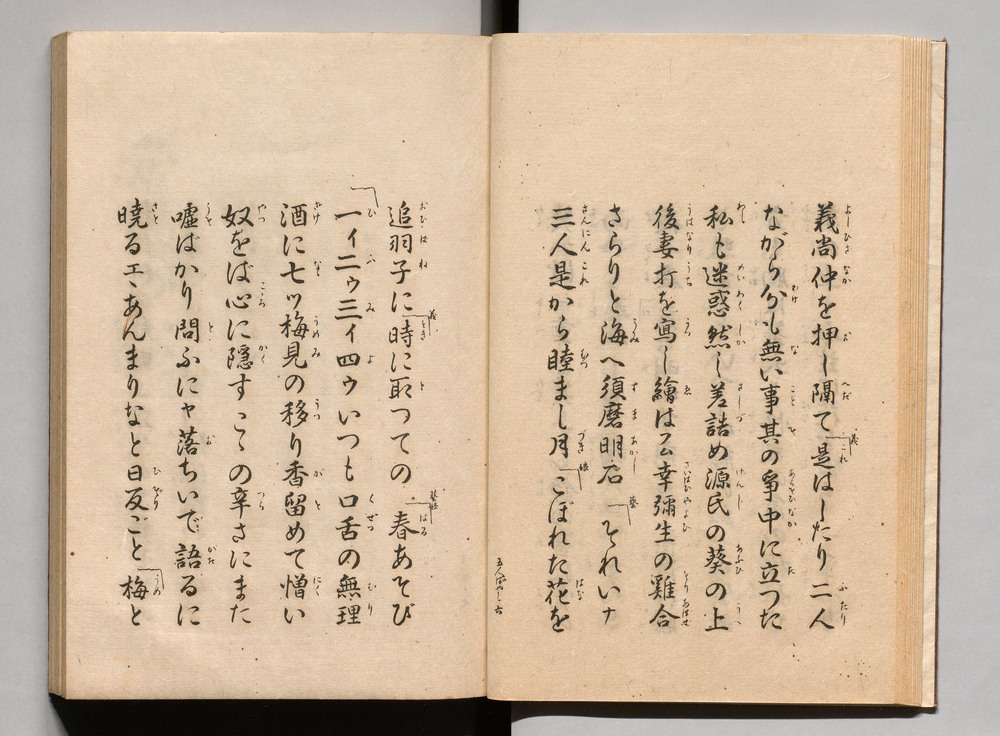 義尚仲を押し隔て是はしたり二人
ながら分も無い事其の爭中に立つた
私も迷惑然し差詰め源氏の葵の上
後妻打を寫し繪は幸彌生の雞合
さらりと海へ須磨明石それいナ
三人是から睦まし月こぼれた花を
五人
追羽子に時に取つての春あそび
一イ二ウ三イ四ウいつも口舌の無理
酒に七ツ梅見の移り香留めて憎い
奴をば心に隱すこゝの辛さにまた
嘘ばかり問ふにャ落ちいで語るに
曉るエゝあんまりなと日反ごと梅と